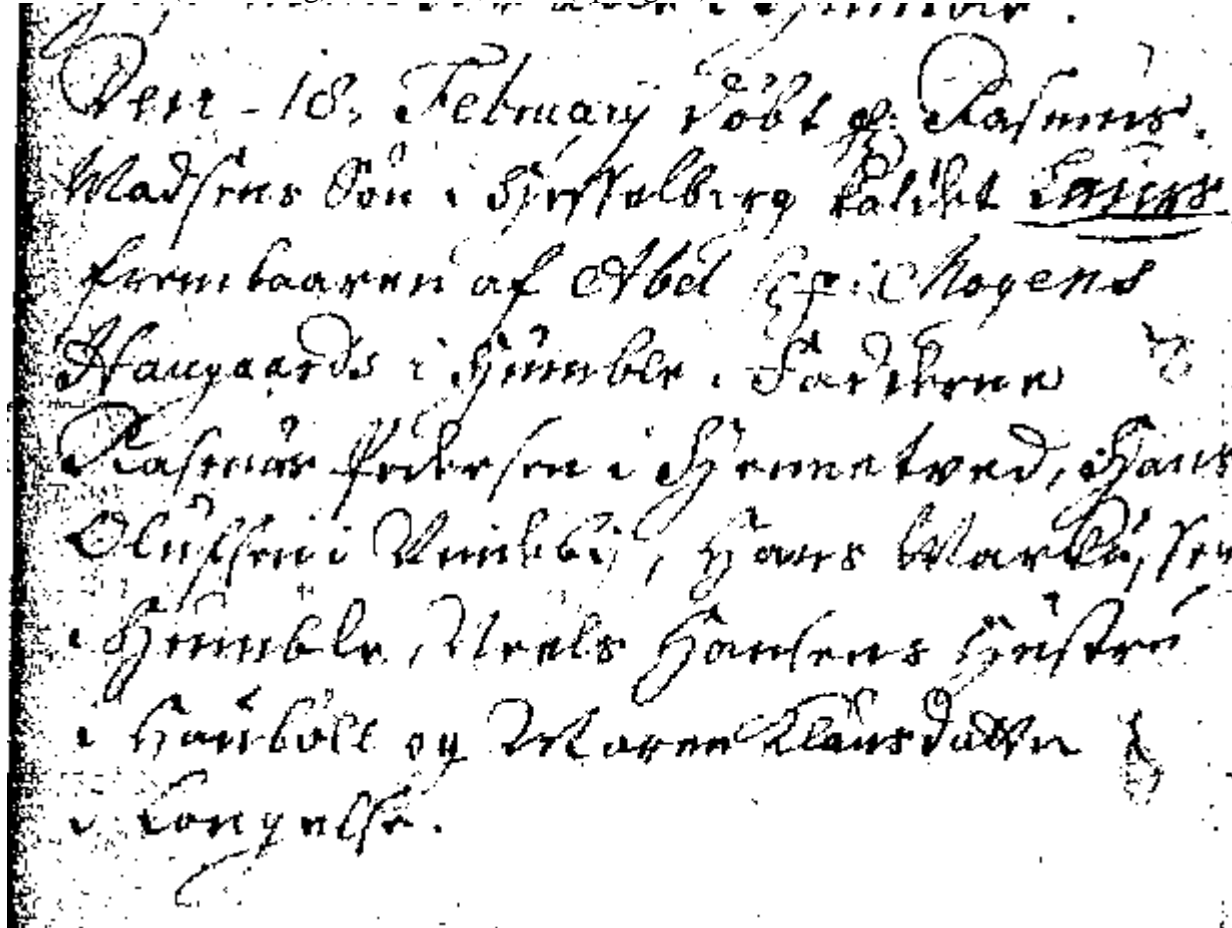 i Humble.
Den - 18. February döbt Rasmus
Madsens Sön i Hesselberg kaldet
frembaaren af Abel Mogens
Haugaards i Humble. Fadderne
Rasmus Pedersen i Hennetved, Hans
Olufsen i Vindebÿ, Hans Markusen
i Humble, Neels Hansens Hustru
i Hauböll og Maren Clausdatter
i Longelse.